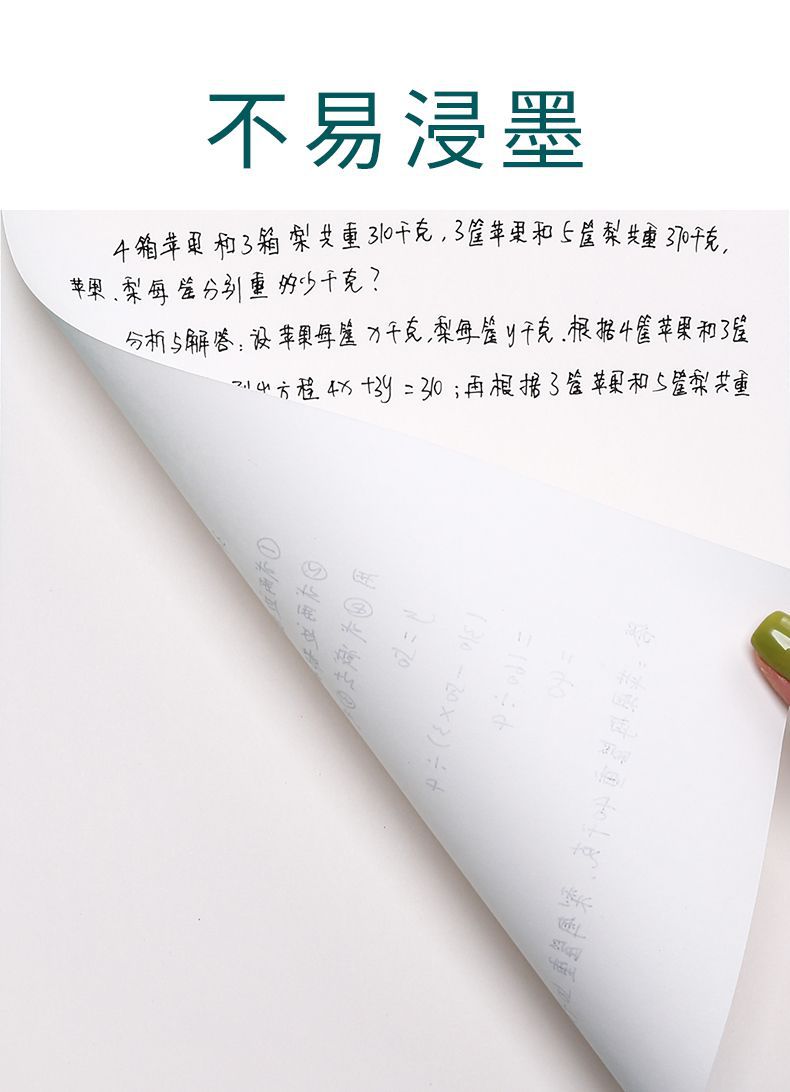 不易浸墨
4箱苹果和3箱梨共重310千克,3筐苹果和5筐梨共重370千克,
苹果、梨每筐分别重多少千克?
分析与解答:设苹果每筐x千克,梨每筐y千克.根据4筐苹果和3筐
列出方程4x+3y=310;再根据3筐苹果和5筐梨共重
y=50
(310-50×3)÷4
=160÷4
=40